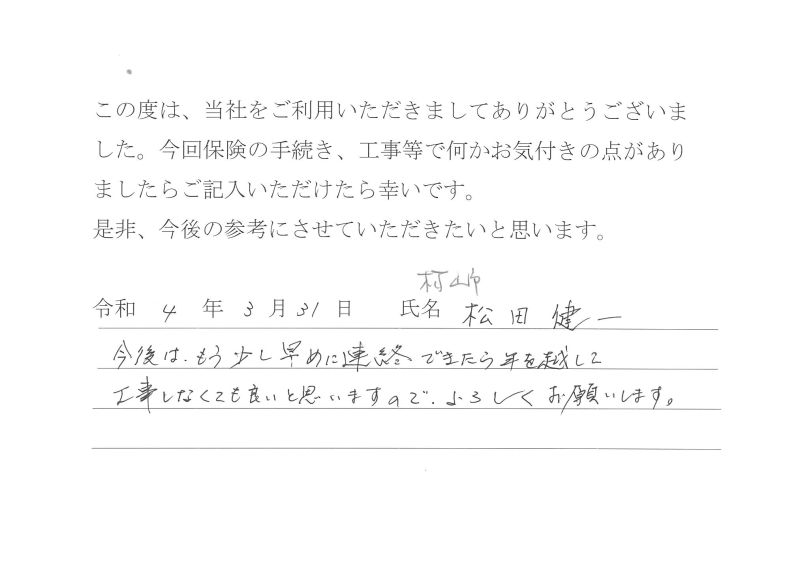 この度は、当社をご利用いただきましてありがとうございま
した。今回保険の手続き、工事等で何かお気付きの点があり
ましたらご記入いただけたら幸いです。
是非、今後の参考にさせていただきたいと思います。
村山市
令和 4 年 3 月 31 日 氏名 松田健一
今後は、もう少し早めに連絡できたら年を越して
工事しなくても良いと思いますので、よろしくお願いします。